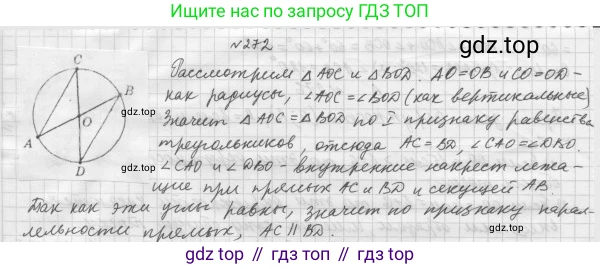 Ищите нас по запросу ГДЗ ТОП
№272
C
B
O
A
D
gdz.top
Рассмотрим △AOC и △BOD. AO=OB и CO=OD-
как радиусы, ∠AOC=∠BOD (как вертикальные)
Значит △AOC=△BOD по I признаку равенства
треугольников, отсюда AC=BD, ∠CAO=∠DBO.
∠CAO и ∠DBO - внутренние накрест лежа-
щие при прямых AC и BD и секущей AB.
Так как эти углы равны, значит по признаку парал-
лельности прямых, AC ∥ BD.
gdz.top
gdz.top
gdz.top
gdz.top
gdz.top // gdz.top // gdz.top // gdz.top